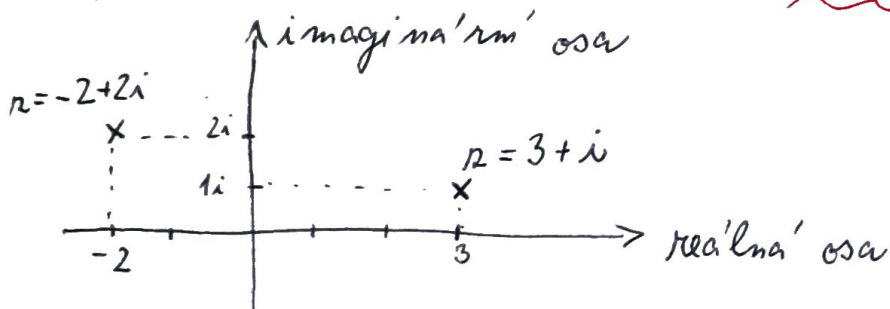 imaginární osa
z=-2+2i
2i
z = 3+i
1i
-2
3
reálná osa